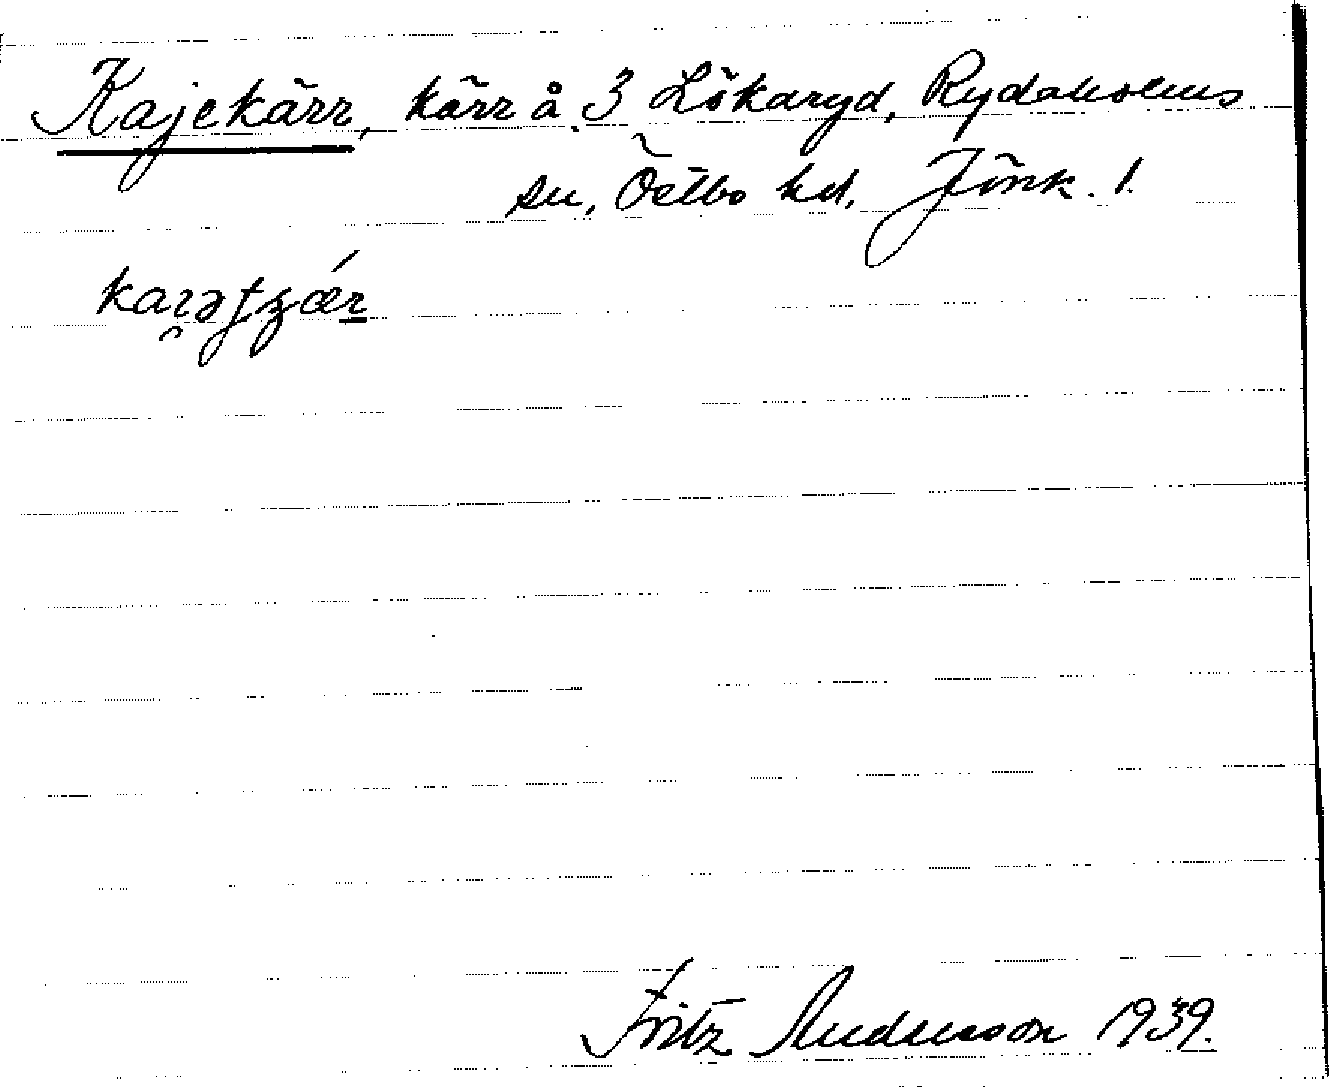 Kajekärr, kärr å 3 Lökaryd, Rydaholms
sn, Östbo hd, Jönk. l.
Fritz Andersson 1939.